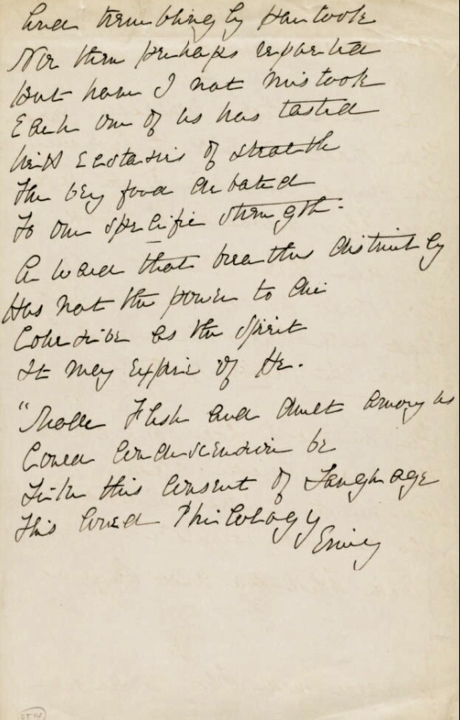 And tremblingly partook
Nor then perhaps reported
But have I not mistook
Each one of us has tasted
With ecstasies of stealth
The very food debated
To our specific strength -
A word that breathes distinctly
Has not the power to die
Cohesive as the Spirit
It may expire if He.
"Made Flesh and dwelt among us
Could condescension be
Like this consent of Language
This loved Philology
Emily